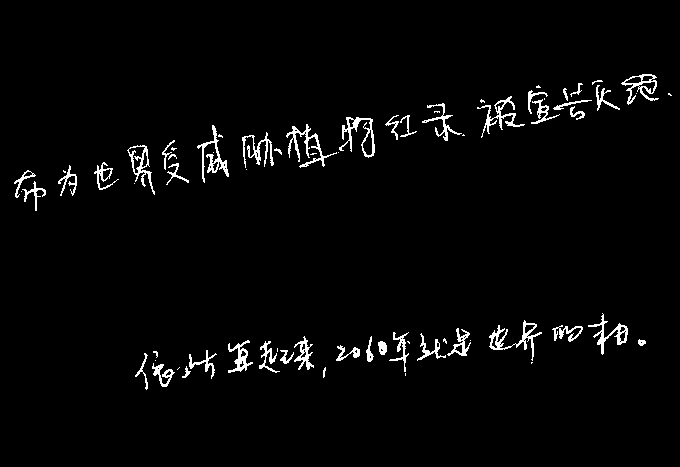 布为世界受威胁植物红录被宣告灭绝.
依此算起来,2060年就是世界的末日。